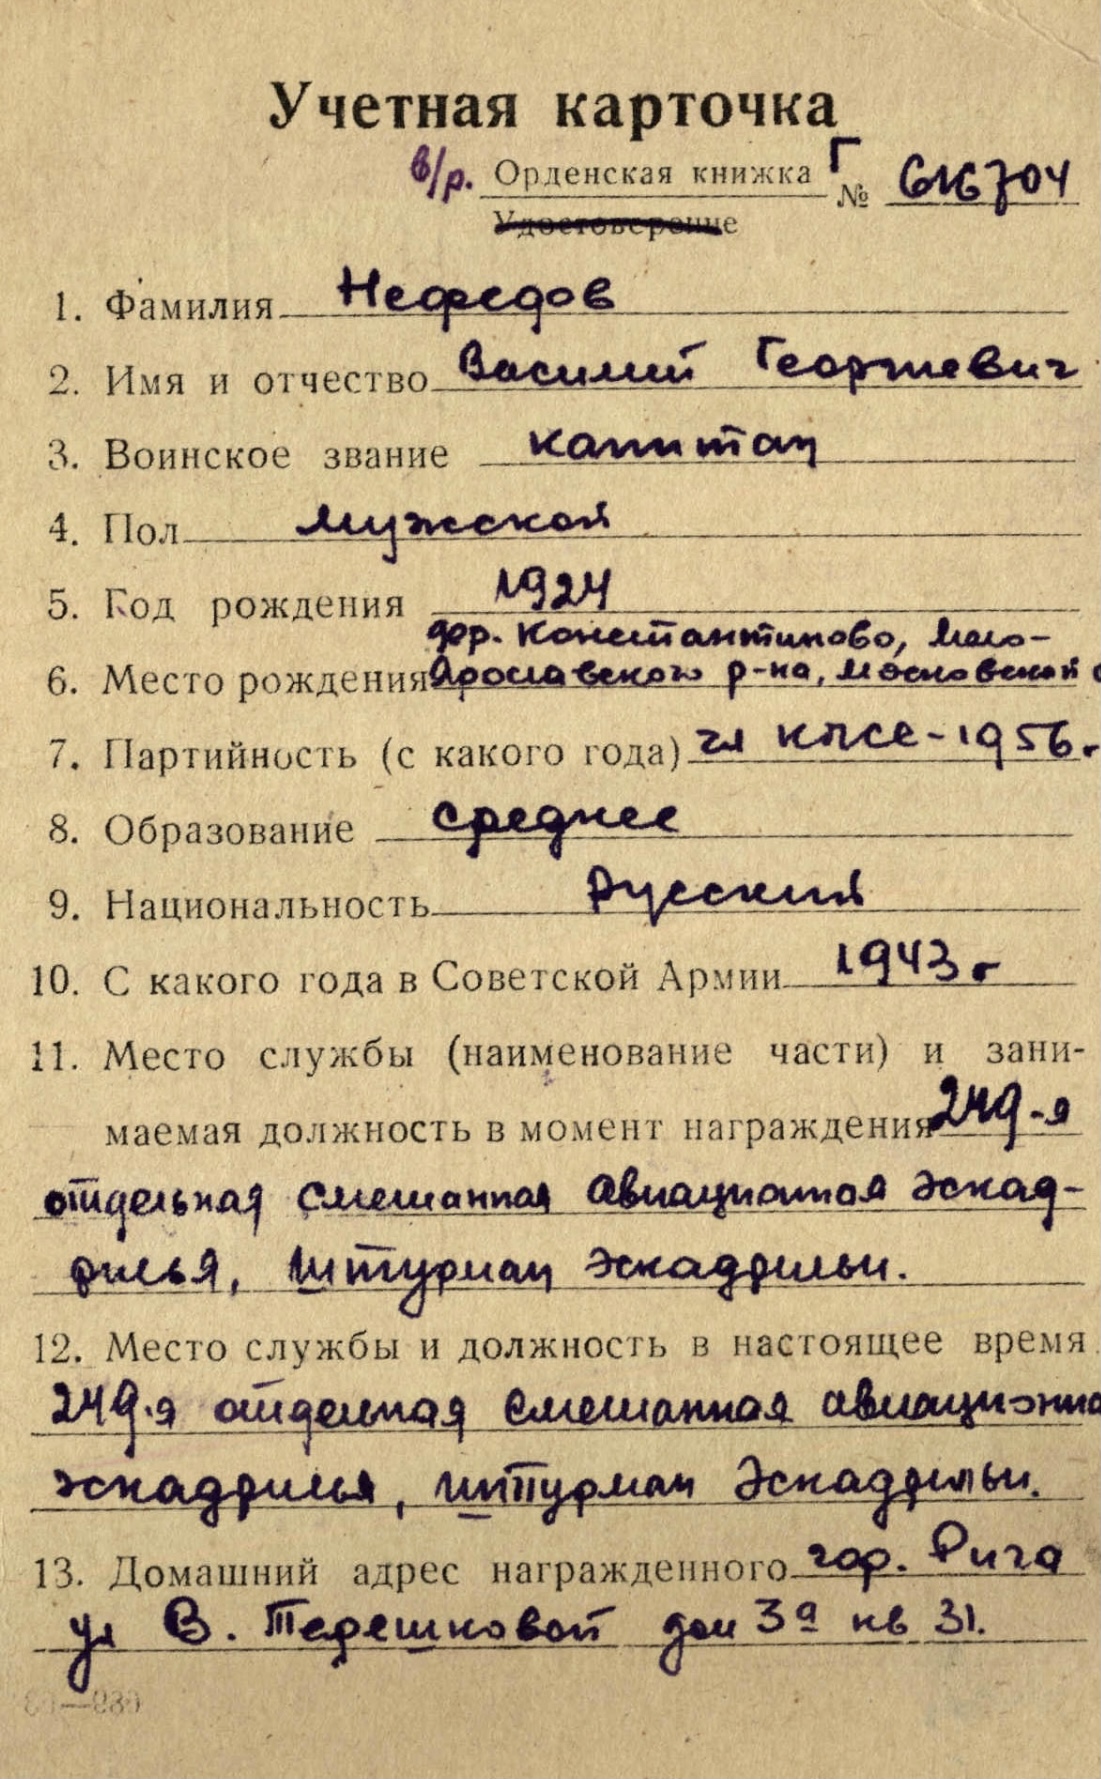 Учетная карточка
в/р. Орденская книжка Г № 616704
Удостоверение
1. Фамилия Нефедов
2. Имя и отчество Василий Георгиевич
3. Воинское звание капитан
4. Пол мужской
5. Год рождения 1924
дер. Константиново, Мало-
6. Место рождения Ярославского р-на, Московской о
7. Партийность (с какого года) чл КПСС-1956.
8. Образование среднее
9. Национальность Русский
10. С какого года в Советской Армии 1943 г
11. Место службы (наименование части) и зани-
маемая должность в момент награждения 249-я
отдельная смешанная авиационная эскад-
рилья, штурман эскадрильи.
12. Место службы и должность в настоящее время
249-я отдельная смешанная авиационна
эскадрилья, штурман эскадрильи.
13. Домашний адрес награжденного гор. Рига
ул В. Терешковой дом 3а кв 31.